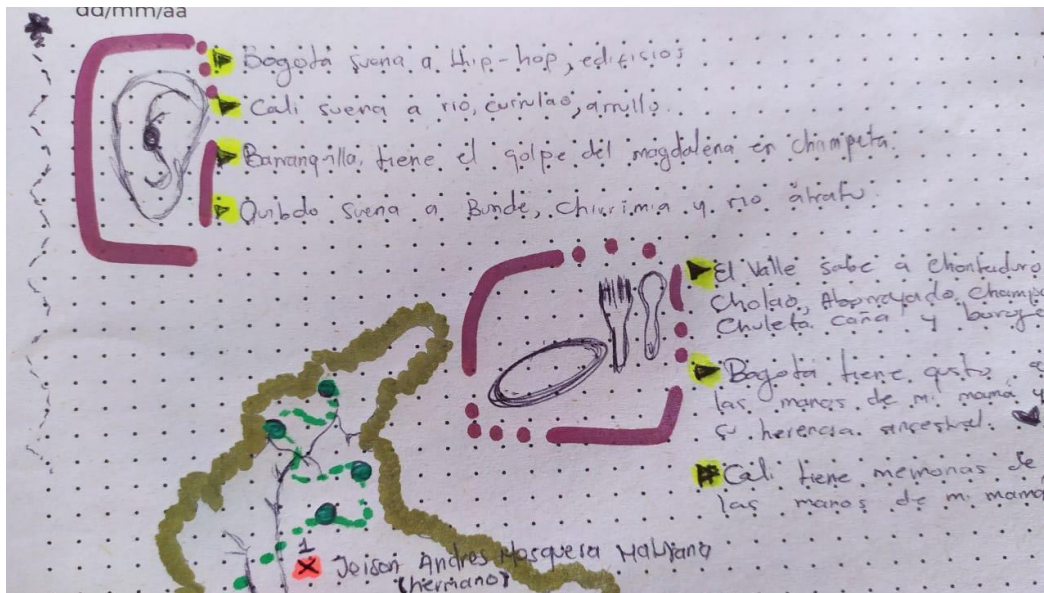 dd/mm/aa
Bogotá suena a Hip-hop, edificios
Cali suena a rio, currulao, arrullo.
Barranquilla, tiene el golpe del magdalena en champeta.
Quibdo suena a Bunde, Chirimia y rio atrato.
El Valle sabe a Chontaduro
Cholao, Aborrajado, Champ
Chuleta caña y
Bogotá tiene gusto, a
las manos de mi mamá y
su herencia ancestral.
Cali tiene memorias de
las manos de mi mamá
1
Jeison Andres Mosquera
(hermano)